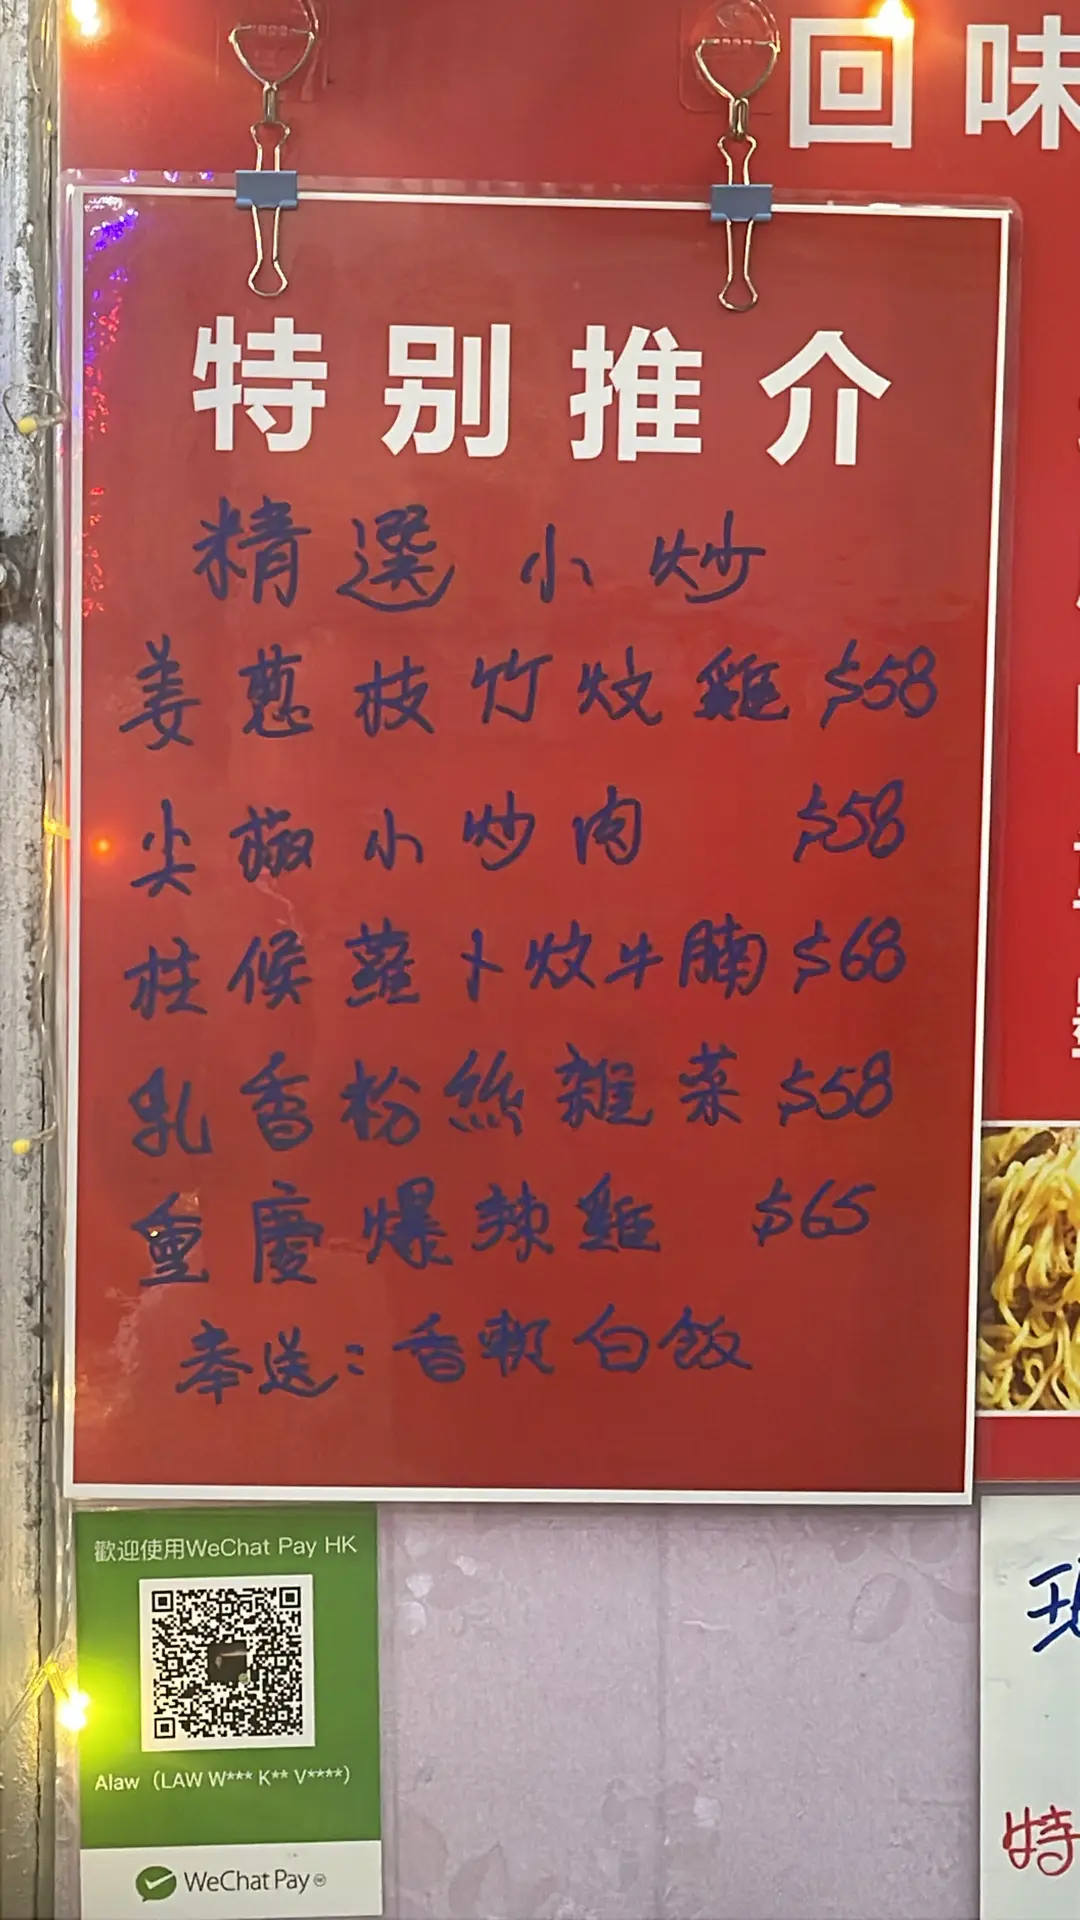 回味
特别推介
精選小炒
姜葱枝竹炆雞 $58
尖椒小炒肉 $58
柱候蘿卜炆牛腩 $68
乳香粉絲雜菜 $58
重慶爆辣雞 $65
奉送：香軟白飯
歡迎使用WeChat Pay HK
Alaw（LAW W*** K** V****）
WeChat Pay HK
特